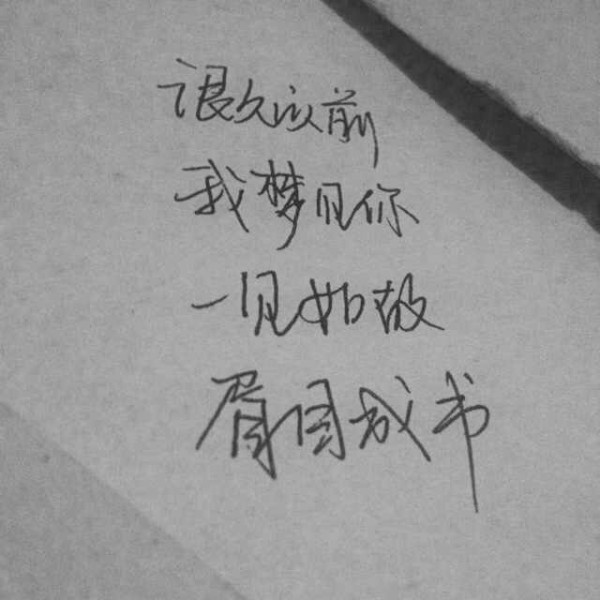 很久以前
我梦见你
一见如故
眉目成书